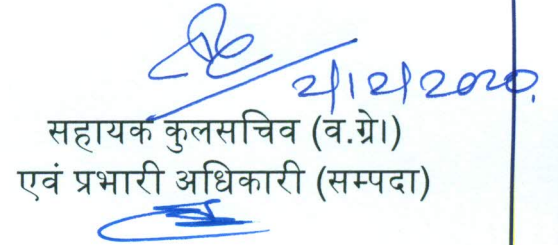 2/12/2020.
सहायक कुलसचिव (व.ग्रे।)
एवं प्रभारी अधिकारी (सम्पदा)